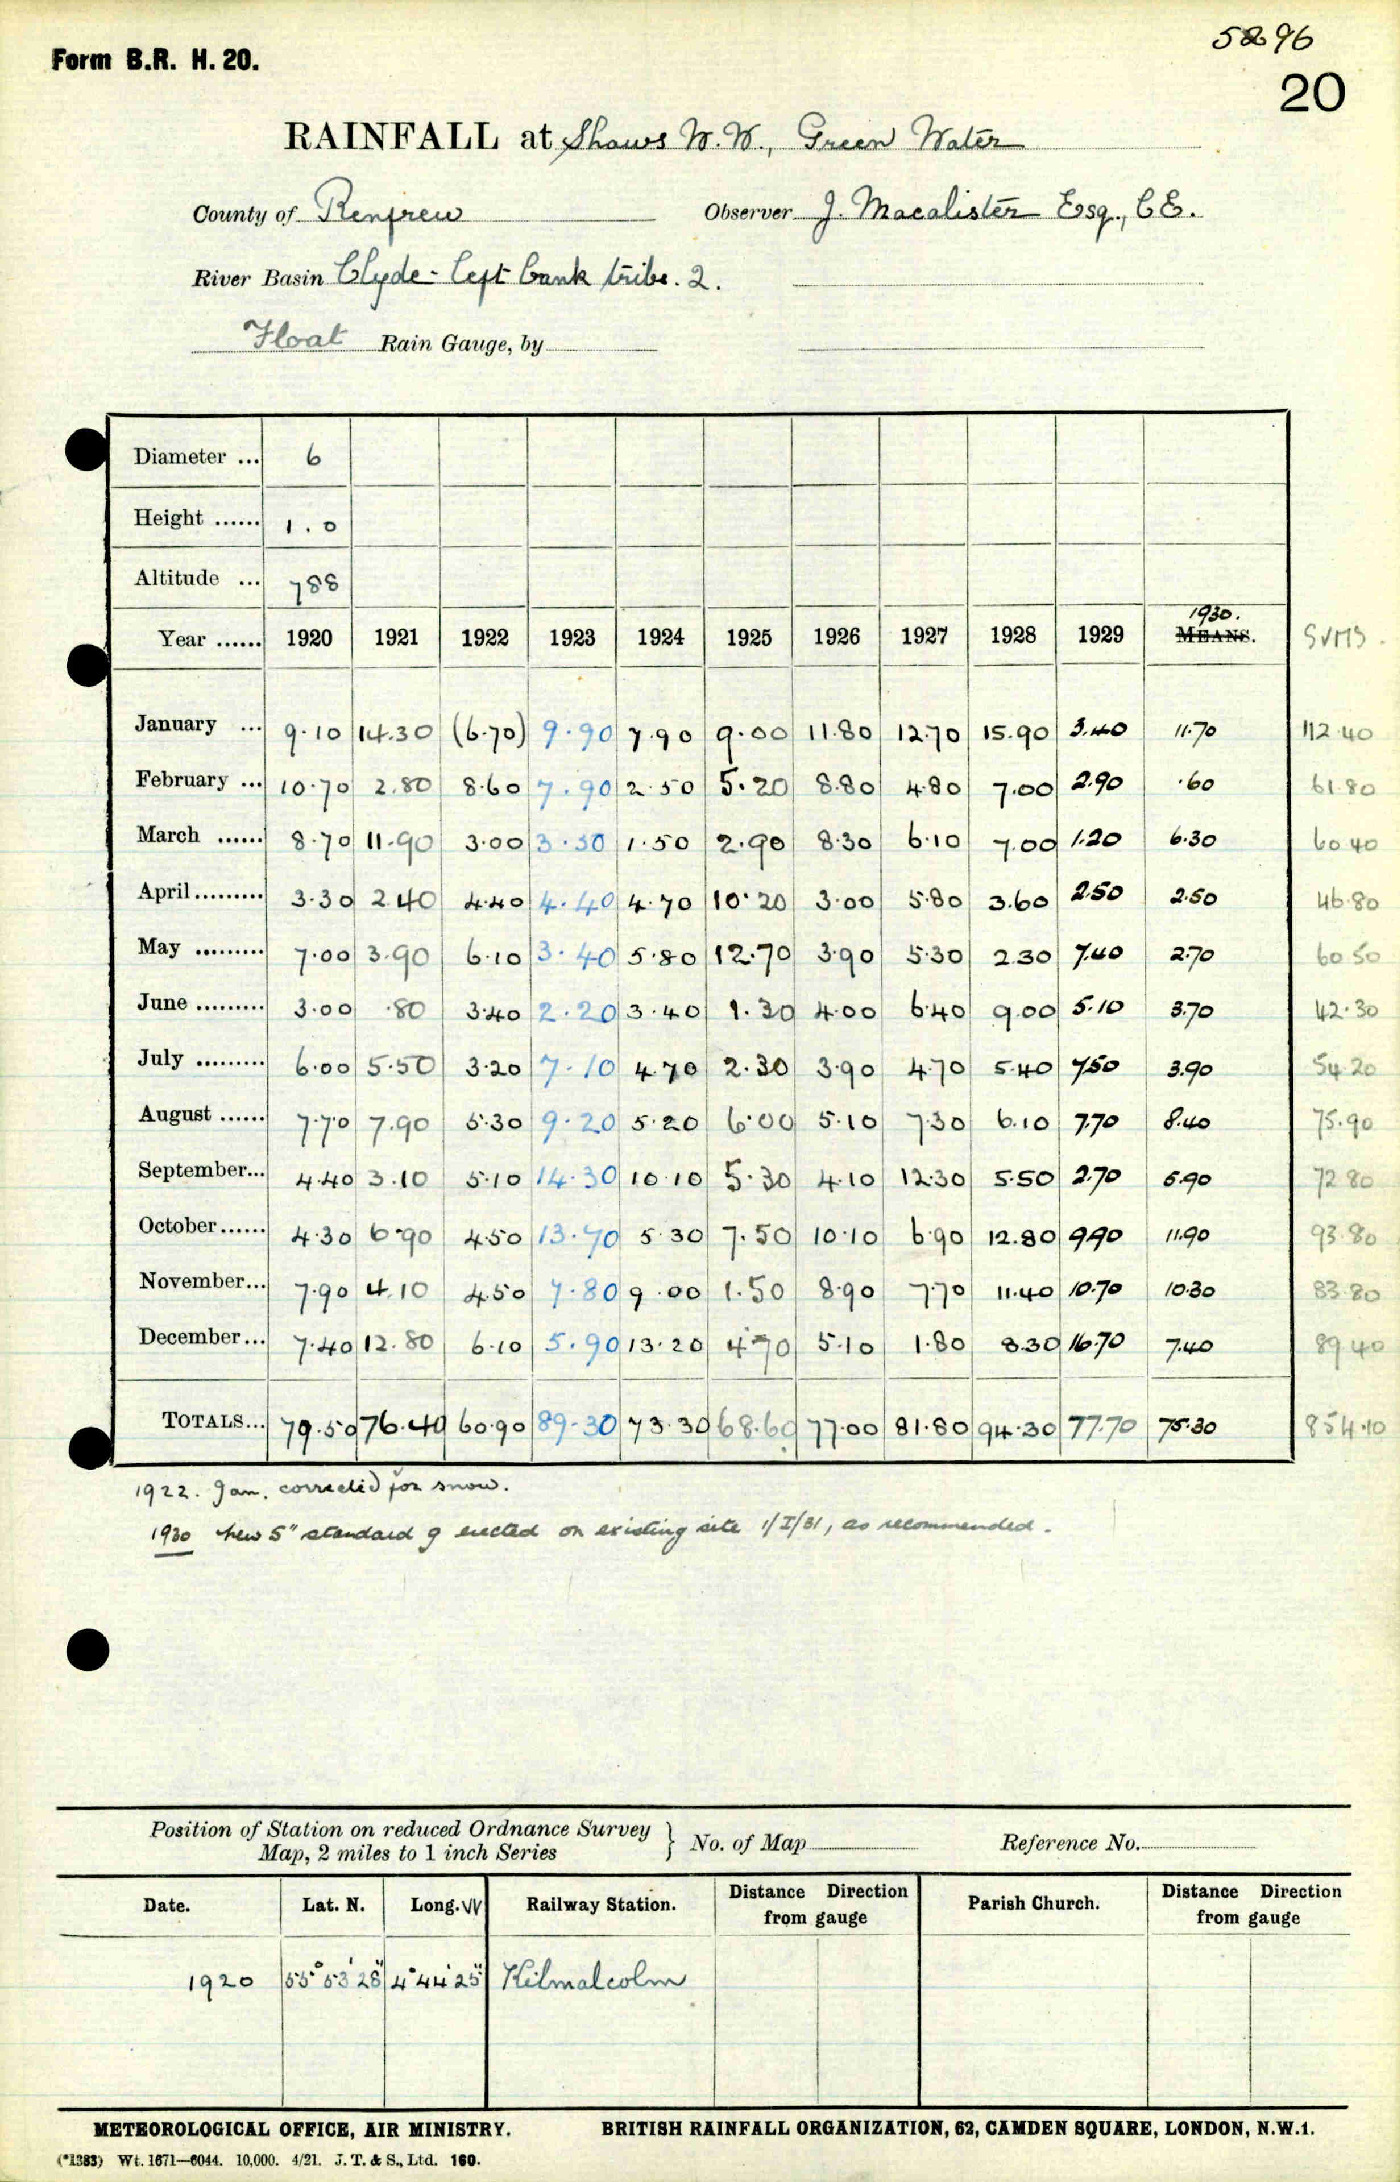 Form B.R. H. 20.
5296
20
RAINFALL at Shaws W.W., Green Water
County of Renfrew Observer J. Macalister Esq., C.E.
River Basin Clyde - left bank tribs. 2.
Float Rain Gauge, by
Diameter ... 6
Height ...... 1.0
Altitude ... 788
Year ...... 1920 1921 1922 1923 1924 1925 1926 1927 1928 1929 1930. MEANS. SUMS.
January ... 9.10 14.30 (6.70) 9.90 7.90 9.00 11.80 12.70 15.90 3.40 11.70 112.40
February ... 10.70 2.80 8.60 7.90 2.50 5.20 8.80 4.80 7.00 2.90 .60 61.80
March ...... 8.70 11.90 3.00 3.50 1.50 2.90 8.30 6.10 7.00 1.20 6.30 60.40
April......... 3.30 2.40 4.40 4.40 4.70 10.20 3.00 5.80 3.60 2.50 2.50 46.80
May ......... 7.00 3.90 6.10 3.40 5.80 12.70 3.90 5.30 2.30 7.40 2.70 60.50
June ......... 3.00 .80 3.40 2.20 3.40 1.30 4.00 6.40 9.00 5.10 3.70 42.30
July ......... 6.00 5.50 3.20 7.10 4.70 2.30 3.90 4.70 5.40 7.50 3.90 54.20
August ...... 7.70 7.90 5.30 9.20 5.20 6.00 5.10 7.30 6.10 7.70 8.40 75.90
September... 4.40 3.10 5.10 14.30 10.10 5.30 4.10 12.30 5.50 2.70 5.90 72.80
October...... 4.30 6.90 4.50 13.70 5.30 7.50 10.10 6.90 12.80 9.90 11.90 93.80
November... 7.90 4.10 4.50 7.80 9.00 1.50 8.90 7.70 11.40 10.70 10.30 83.80
December... 7.40 12.80 6.10 5.90 13.20 4.70 5.10 1.80 8.30 16.70 7.40 89.40
TOTALS... 79.50 76.40 60.90 89.30 73.30 68.60 77.00 81.80 94.30 77.70 75.30 854.10
1922. Jan. corrected for snow.
1930 New 5" standard g erected on existing site 1/I/31, as recommended.
Position of Station on reduced Ordnance Survey
Map, 2 miles to 1 inch Series } No. of Map Reference No.
Date. Lat. N. Long. W Railway Station. Distance Direction from gauge Parish Church. Distance Direction from gauge
1920 55° 53' 28" 4° 44' 25" Kilmalcolm
METEOROLOGICAL OFFICE, AIR MINISTRY. BRITISH RAINFALL ORGANIZATION, 62, CAMDEN SQUARE, LONDON, N.W.1.
(*1383) Wt. 1671—6044. 10,000. 4/21. J. T. & S., Ltd. 160.